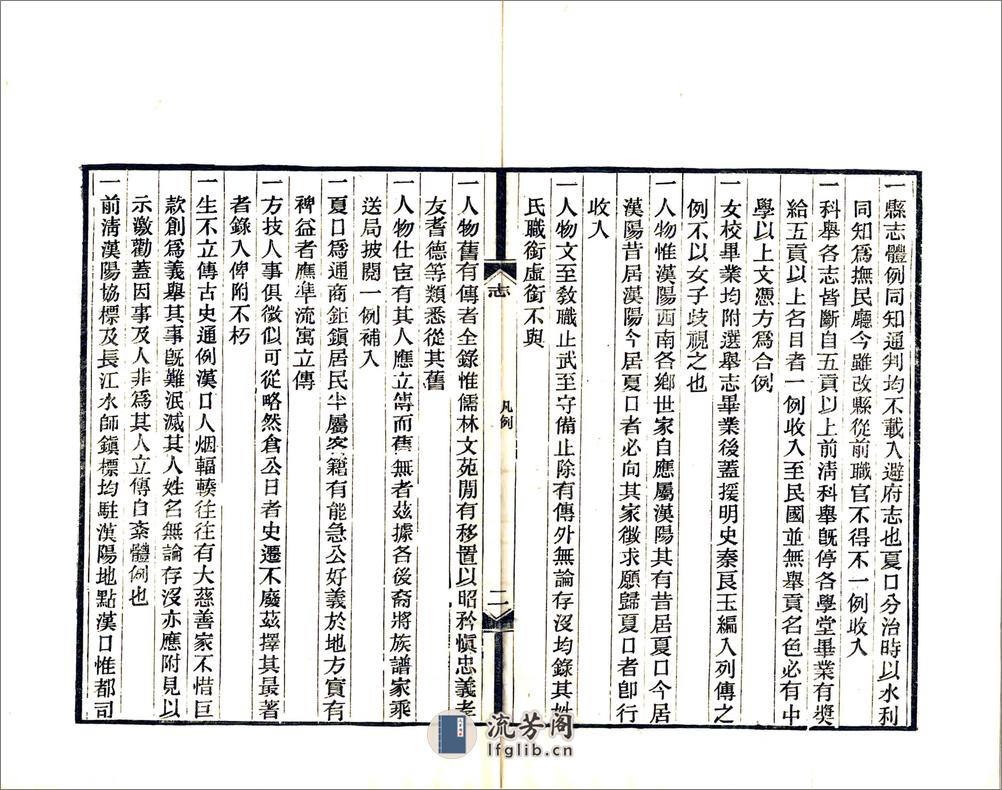 一縣志體例同知通判均不載入避府志也夏口分治時以水利
同知爲撫民廳今雖改縣從前職官不得不一例收入
一科舉各志皆斷自五貢以上前淸科舉旣停各學堂畢業有奬
給五貢以上名目者一例收入至民國並無舉貢名色必有中
學以上文憑方爲合例
一女校畢業均附選舉志畢業後蓋援明史秦良玉編入列傳之
例不以女子歧視之也
一人物惟漢陽西南各鄉世家自應屬漢陽其有昔居夏口今居
漢陽昔居漢陽今居夏口者必向其家徵求願歸夏口者卽行
收入
一人物文至敎職止武至守備止除有傳外無論存沒均錄其姓
氏職銜虛銜不與
志
凡例
二
一人物舊有傳者全錄惟儒林文苑閒有移置以昭矜愼忠義孝
友耆德等類悉從其舊
一人物仕宦有其人應立傳而舊無者茲據各後裔將族譜家乘
送局披閱一例補入
一夏口爲通商鉅鎭居民半屬客籍有能急公好義於地方實有
裨益者應準流寓立傳
一方技人事俱微似可從略然倉公日者史遷不廢茲擇其最著
者錄入俾附不朽
一生不立傳古史通例漢口人烟輻輳往往有大慈善家不惜巨
款創爲義舉其事旣難泯滅其人姓名無論存沒亦應附見以
示激勸蓋因事及人非爲其人立傳自紊體例也
一前淸漢陽協標及長江水師鎭標均駐漢陽地點漢口惟都司
流芳阁
lfglib.cn